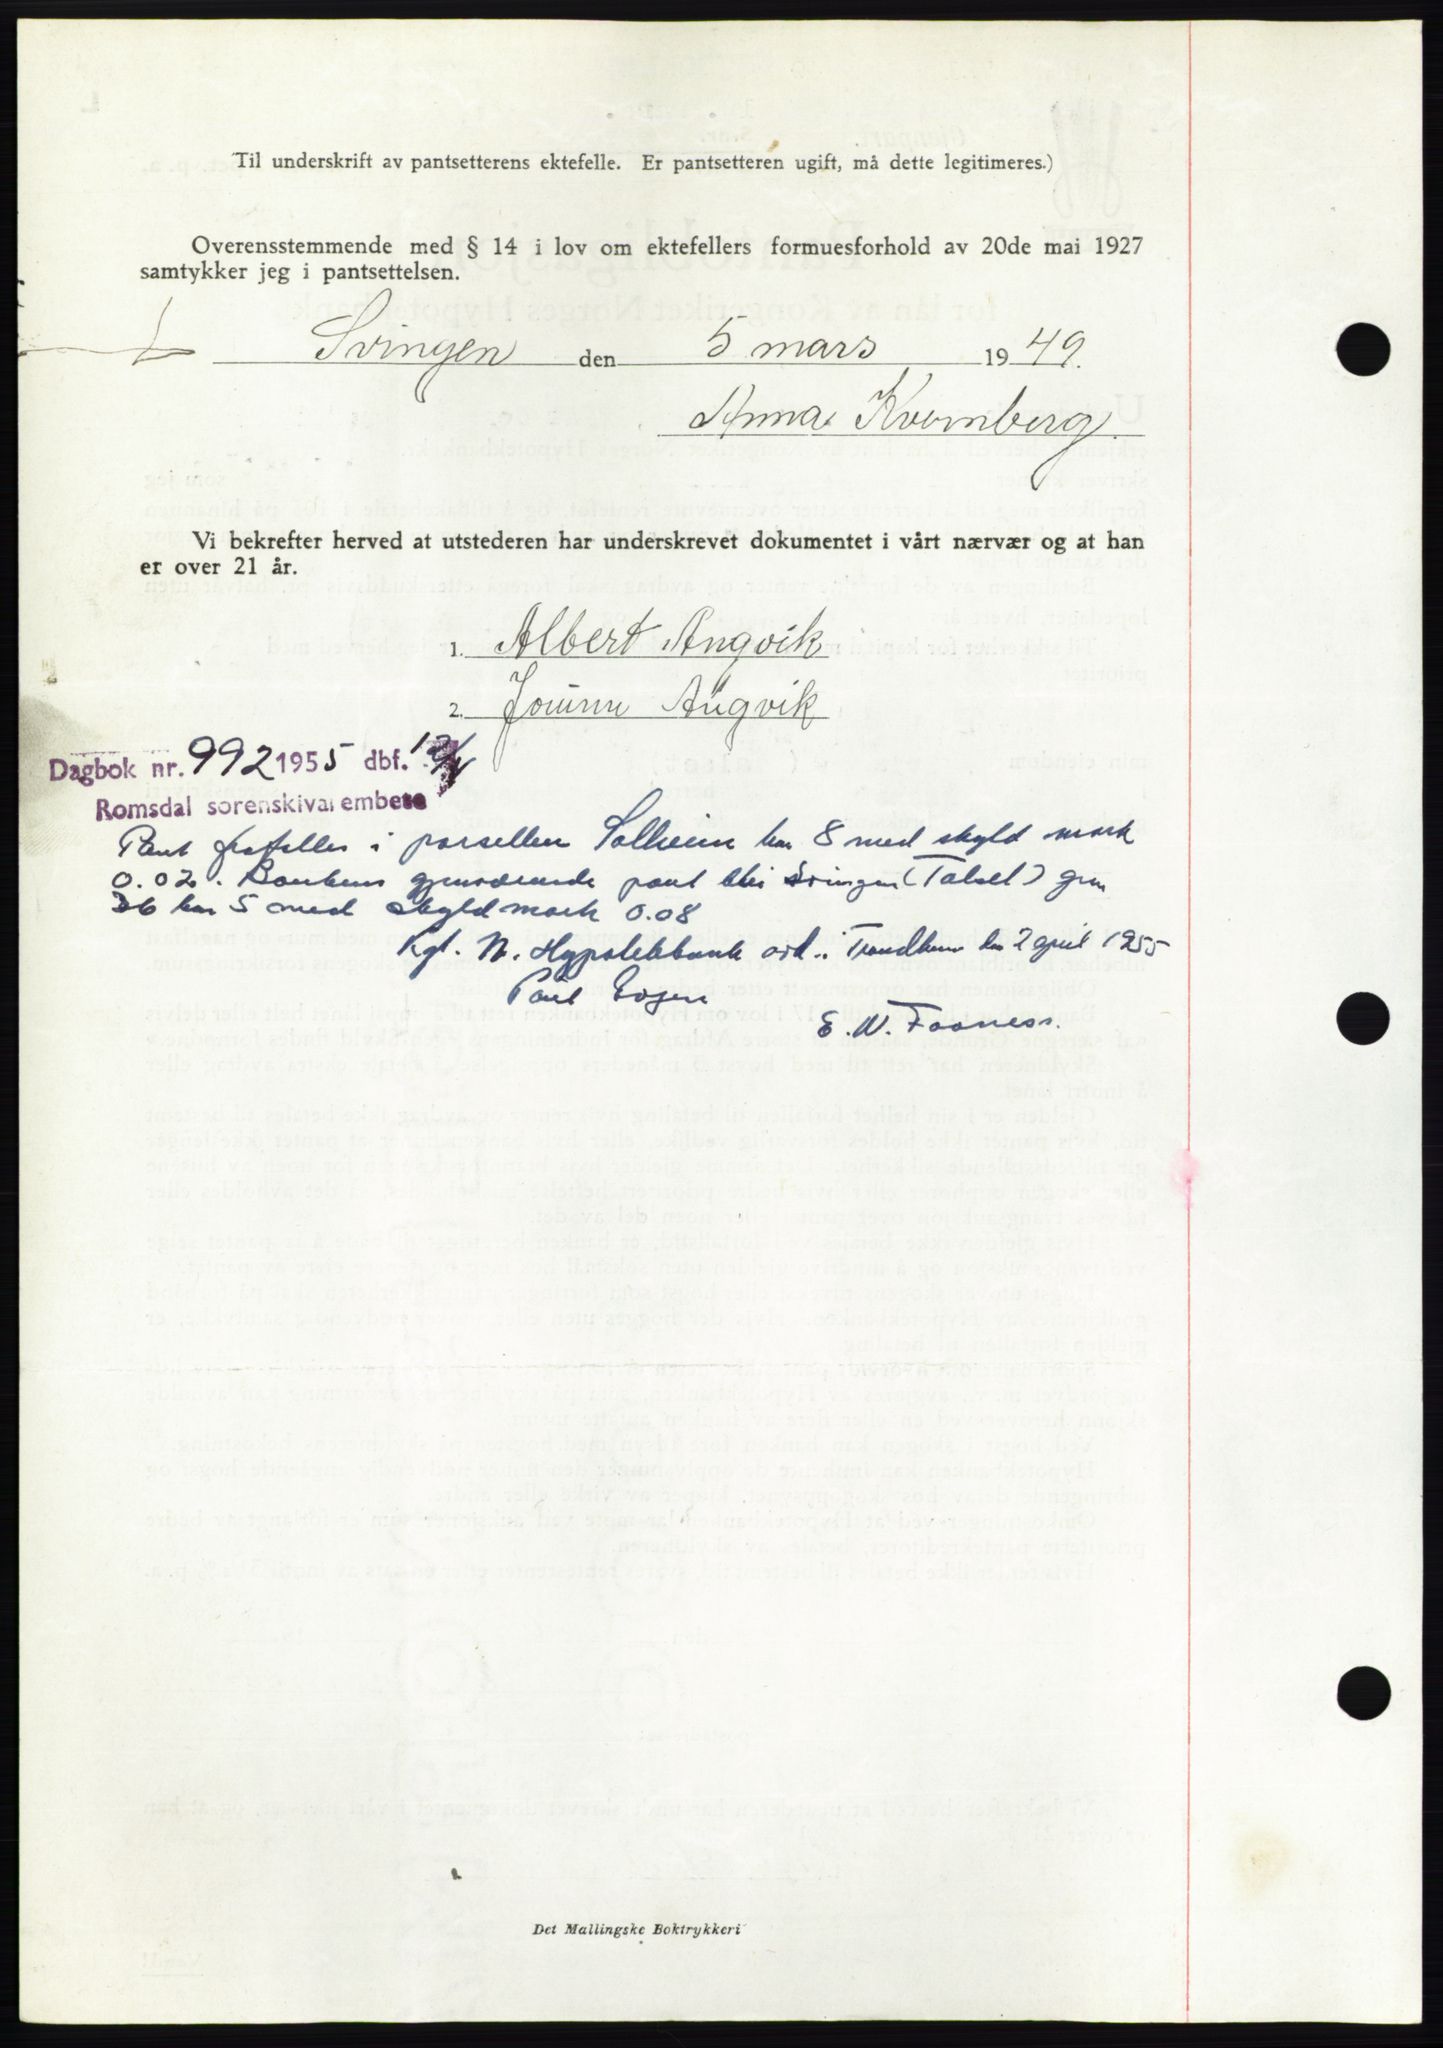 Til underskrift av pantsetterens ektefelle. Er pantsetteren ugift, må dette legitimeres.)
Overensstemmende med § 14 i lov om ektefellers formuesforhold av 20de mai 1927
samtykker jeg i pantsettelsen.
Svingen den 5 mars 1949.
Anna Kvernberg.
Vi bekrefter herved at utstederen har underskrevet dokumentet i vårt nærvær og at han
er over 21 år.
1. Albert Angvik
2. Angvik
Dagbok nr. 992 1955 dbf. 12/4
Romsdal sorenskriverembete
Pant frafalles i parsellen Solheim bnr 8 med skyld mark
0.02. Bankens gjenværende pant blir Svingen (Talset) gnr
36 bnr 5 med skyld mark 0.08
Kgl. N. Hypotekbank avd. i Trondheim den 2 april 1955
Paul
E. W. Faanes.
Det Mallingske Boktrykkeri